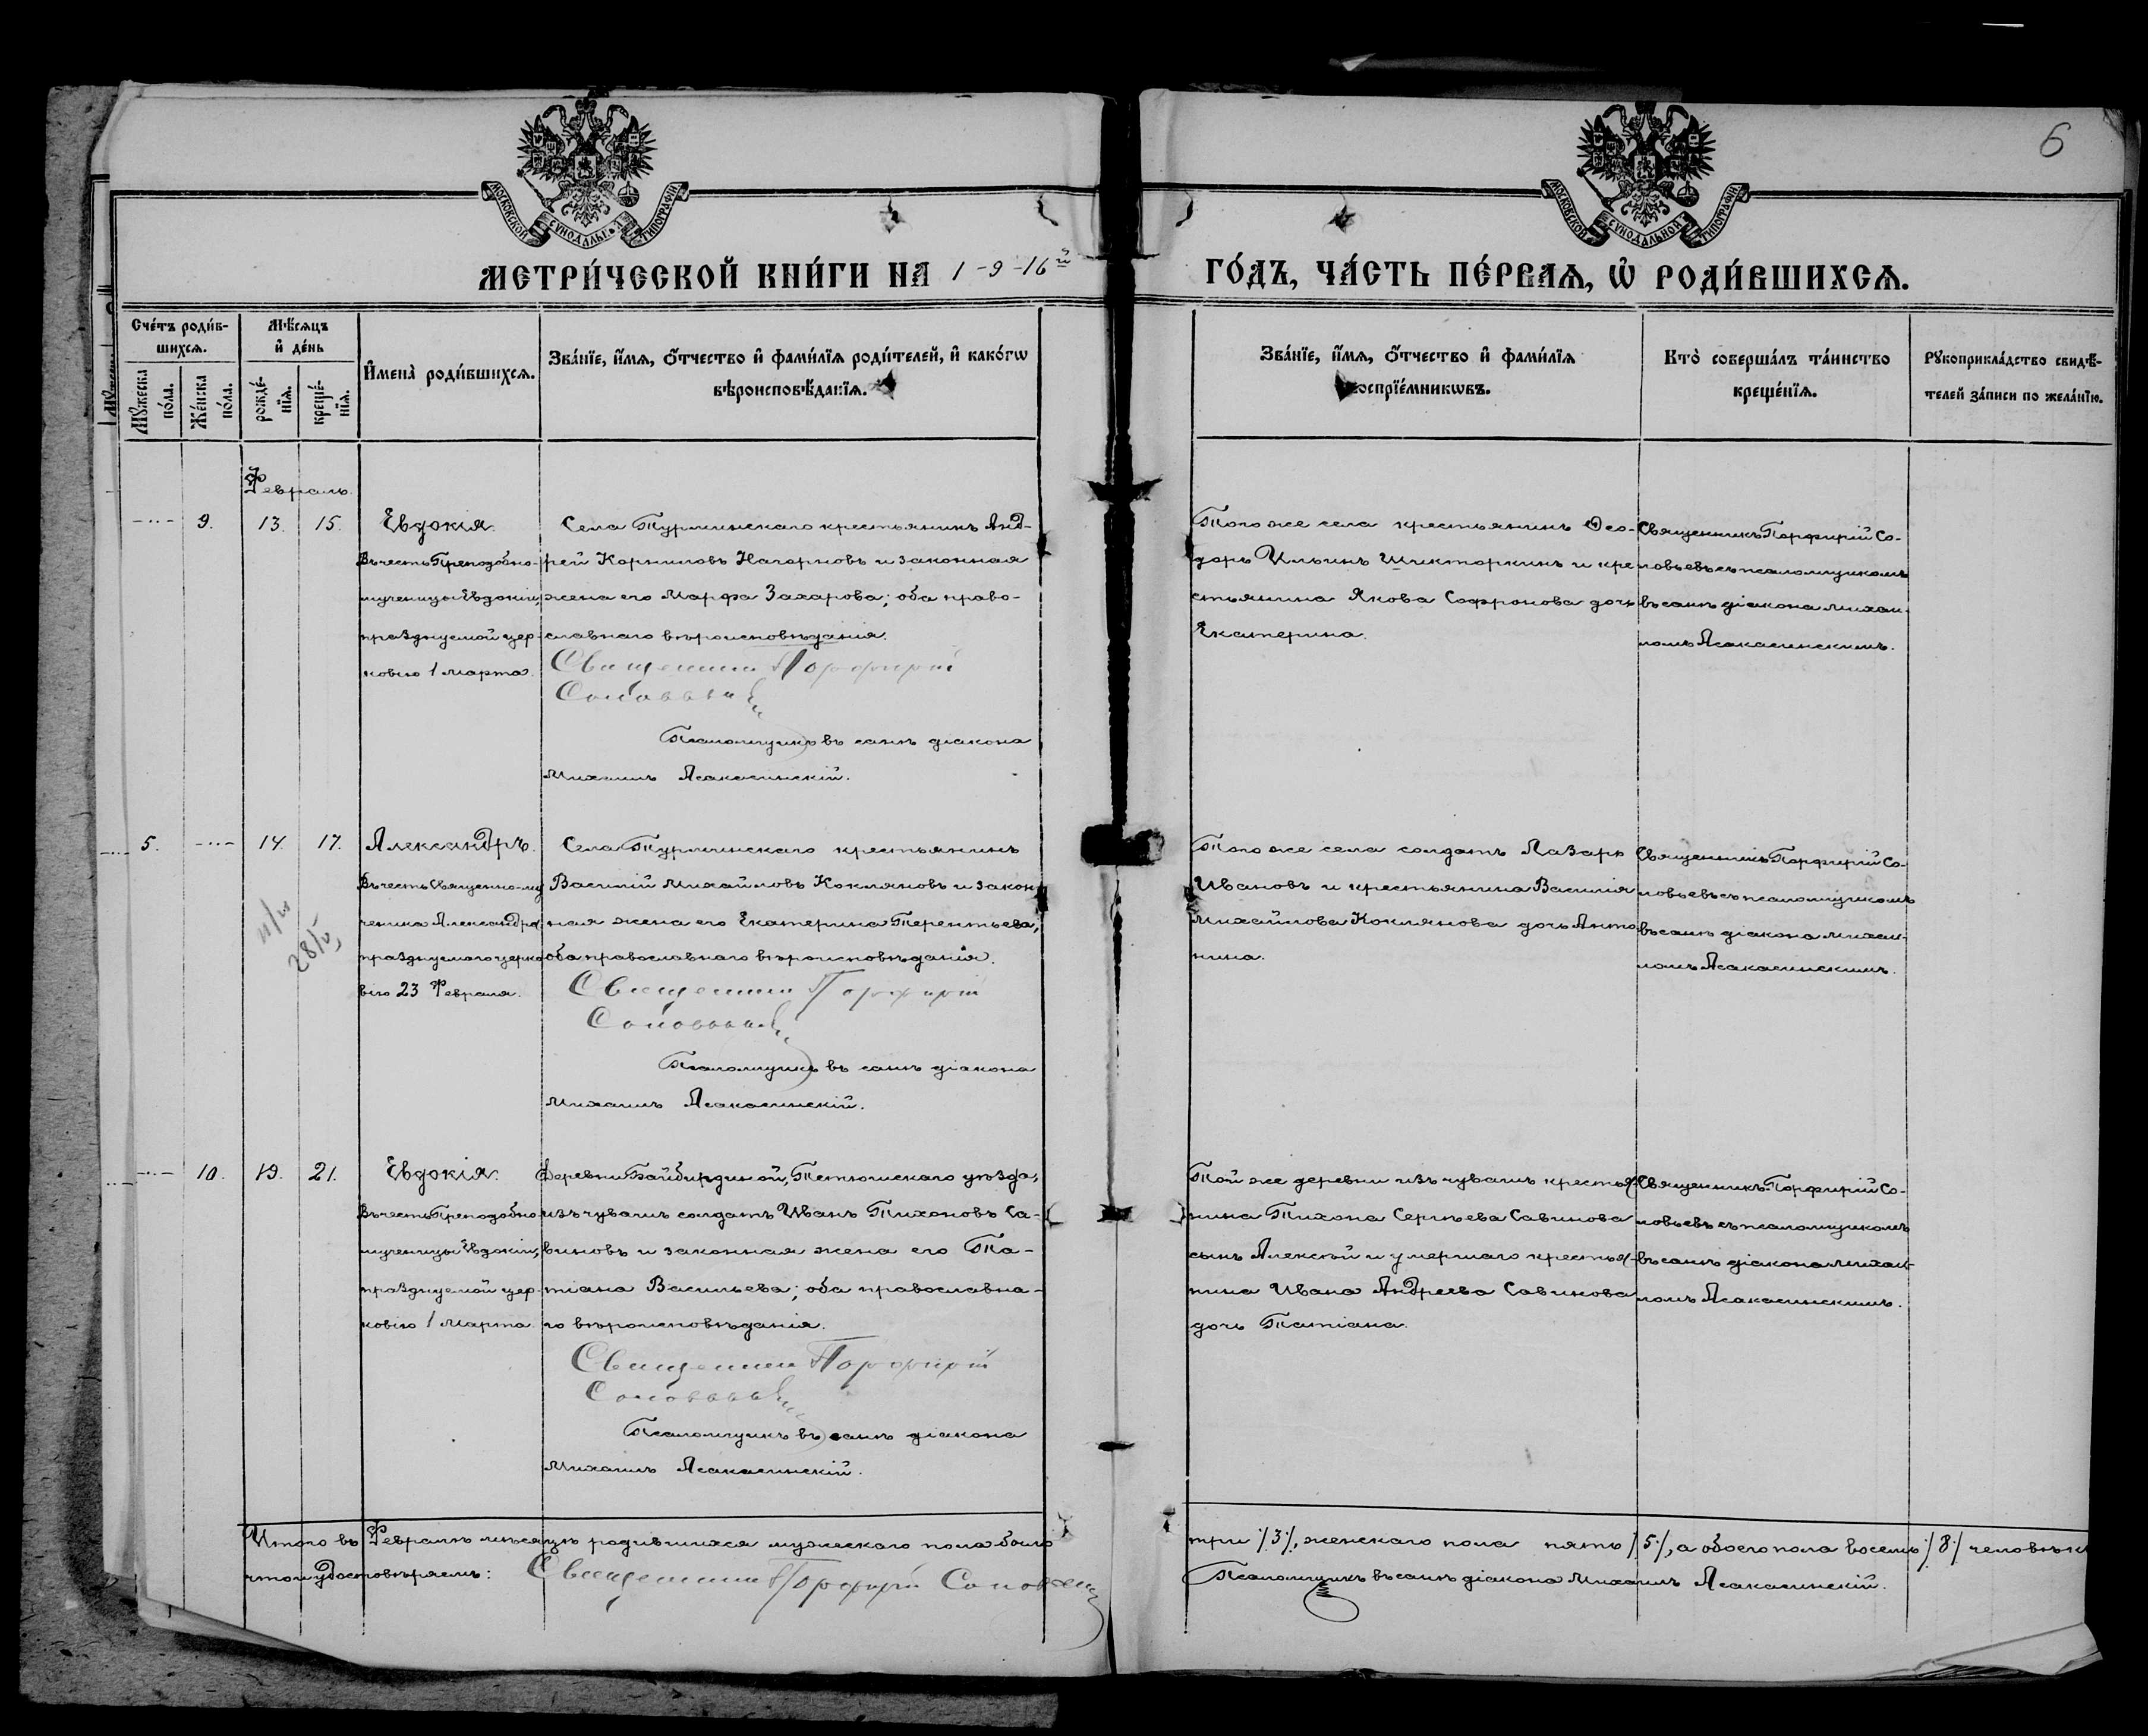 6
МОСКОВСКОЙ СѴНОДАЛЬНОЙ ТИПОГРАФІИ
МОСКОВСКОЙ СѴНОДАЛЬНОЙ ТИПОГРАФІИ
МЕТРИ́ЧЕСКОЙ КНИ́ГИ НА 1-9-16й
ГО́ДЪ, ЧА́СТЬ ПЕ́РВАѦ, Ѡ РОДИ́ВШИХСѦ.
Сче́тъ роди́в-
шихсѧ.
Мꙋ́жеска по́ла.
Же́нска по́ла.
Мѣ́сяцъ
и҆ де́нь
рожде́-
нїѧ.
креще́-
нїѧ.
И҆мена̀ роди́вшихсѧ.
Зва́нїе, и҆́мѧ, о҆́тчество и҆ фами́лїѧ роди́телей, и҆ како́гѡ
вѣроисповѣ́данїѧ.
Зва́нїе, и҆́мѧ, о҆́тчество и҆ фами́лїѧ
воспрїе́мникѡвъ.
Кто̀ соверша́лъ та́инство
креще́нїѧ.
Рꙋкоприкла́дство свидѣ́-
телей за́писи по жела́нїю.
Февраль.
9. 13. 15. Евдокія.
Въ честь Преподобно-
мученицы Евдокіи,
празднуемой цер-
ковію 1 марта.
Села Турминскаго крестьянинъ Анд-
рей Корниловъ Нагорновъ и законная
жена его Марфа Захарова; оба право-
славнаго вѣроисповѣданія.
Священникъ Порфирій
Соловьевъ
Псаломщикъ въ санѣ діакона
Михаилъ Асакасинскій.
Того же села крестьянинъ Ѳео-
доръ Ильинъ Шикторкинъ и кре
стьянина Якова Софронова дочь
Екатерина.
Священникъ Порфирій Со-
ловьевъ съ псаломщикомъ
въ санѣ діакона Михаи-
ломъ Асакасинскимъ.
5. 14. 17. Александръ.
Въ честь Священно-му
ченика Александра,
празднуемаго церко
вію 23 Февраля.
28/V
Села Турминскаго крестьянинъ
Василій Михайловъ Кокляновъ и закон
ная жена его Екатерина Терентьева;
оба православнаго вѣроисповѣданія.
Священникъ Порфирій
Соловьевъ
Псаломщикъ въ санѣ діакона
Михаилъ Асакасинскій.
Того же села солдатъ Лазарь
Ивановъ и крестьянина Василія
Михайлова Коклянова дочь Анто
нина.
Священникъ Порфирій Со-
ловьевъ съ псаломщикомъ
въ санѣ діакона Михаи-
ломъ Асакасинскимъ.
10. 19. 21. Евдокія.
Въ честь Преподобно
мученицы Евдокіи,
празднуемой цер-
ковію 1 Марта.
Деревни Байбирдиной, Тетюшскаго уѣзда,
изъ чувашъ солдатъ Иванъ Тихоновъ Са-
виновъ и законная жена его Та-
тіана Васильева; оба православна-
го вѣроисповѣданія.
Священникъ Порфирій
Соловьевъ
Псаломщикъ въ санѣ діакона
Михаилъ Асакасинскій.
Той же деревни изъ чувашъ крестья-
нина Тихона Сергѣева Савинова
сынъ Алексѣй и умершаго крестья-
нина Ивана Андреева Савинова
дочь Татіана.
Священникъ Порфирій Со-
ловьевъ съ псаломщикомъ
въ санѣ діакона Михаи-
ломъ Асакасинскимъ.
Итого въ Февралѣ мѣсяцѣ родившихся мужескаго пола было
три /3/, женскаго пола пять /5/, а обоего пола восемь /8/ человѣкъ
что и удостовѣряемъ: Священникъ Порфирій Соловьевъ
Псаломщикъ въ санѣ діакона Михаилъ Асакасинскій.